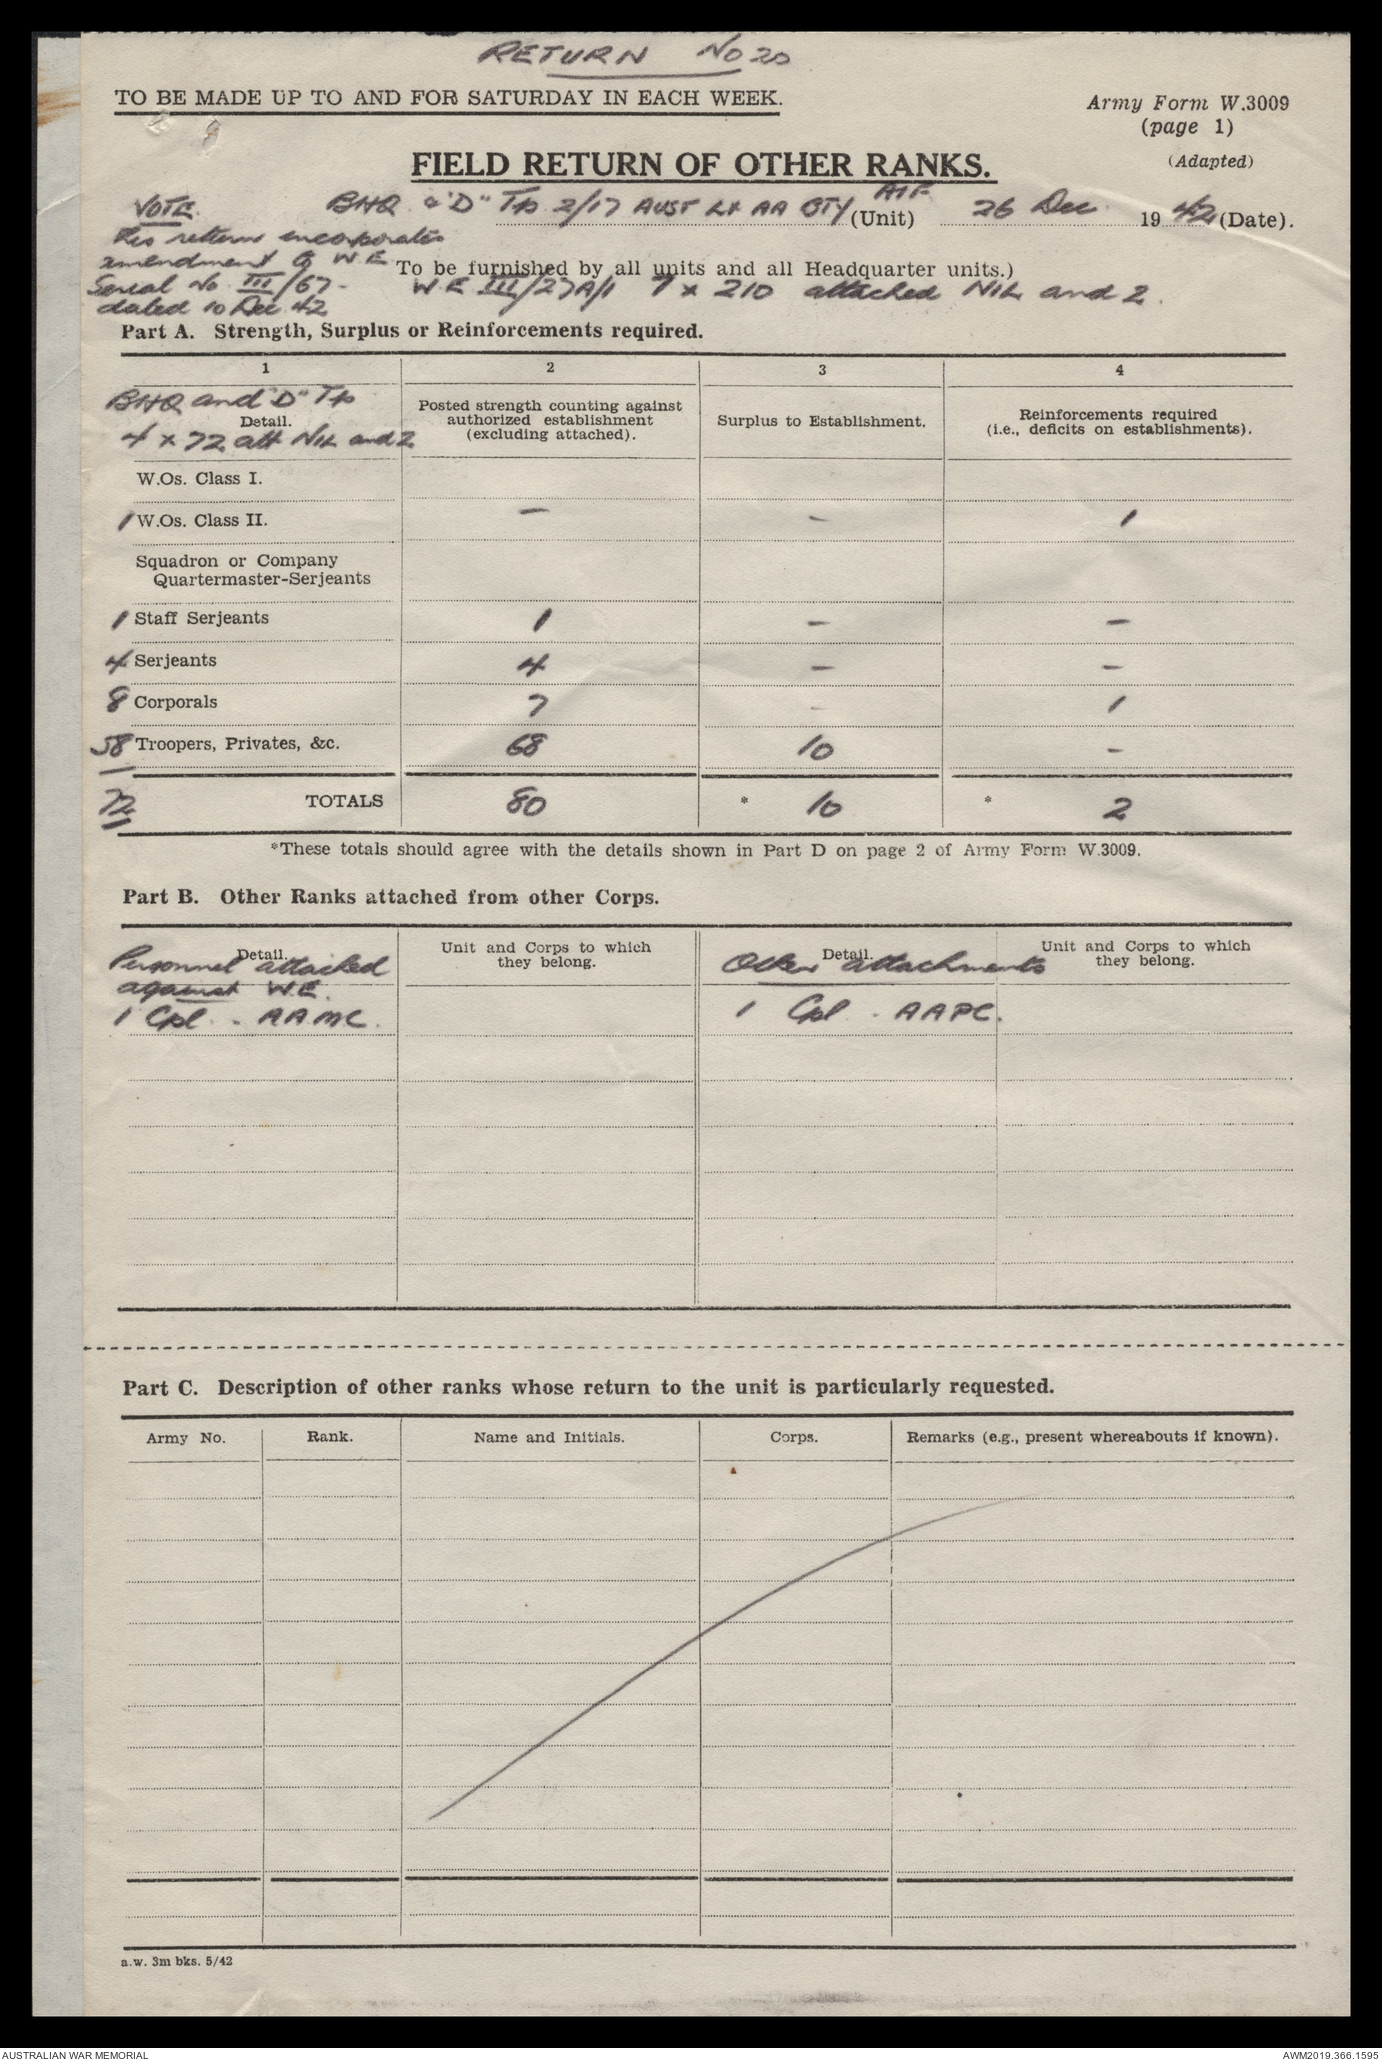 RETURN No 20
TO BE MADE UP TO AND FOR SATURDAY IN EACH WEEK.
Army Form W.3009
(page 1)
(Adapted)
FIELD RETURN OF OTHER RANKS.
BHQ & "D" Tp 2/17 AUST Lt AA BTY AIF (Unit) 26 Dec 1942 (Date).
NOTE.
This return incorporates
amendment to W E
Serial No. III/67-
dated 10 Dec 42
To be furnished by all units and all Headquarter units.)
W E III/27A/1 7 x 210 attached NIL and 2.
Part A. Strength, Surplus or Reinforcements required.
1 2 3 4
BHQ and "D" Tp
Detail.
4 x 72 att NIL and 2
Posted strength counting against
authorized establishment
(excluding attached).
Surplus to Establishment.
Reinforcements required
(i.e., deficits on establishments).
W.Os. Class I.
1 W.Os. Class II. - - 1
Squadron or Company
Quartermaster-Serjeants
1 Staff Serjeants 1 - -
4 Serjeants 4 - -
8 Corporals 7 - 1
58 Troopers, Privates, &c. 68 10 -
72 TOTALS 80 * 10 * 2
*These totals should agree with the details shown in Part D on page 2 of Army Form W.3009.
Part B. Other Ranks attached from other Corps.
Detail.
Unit and Corps to which
they belong.
Detail.
Unit and Corps to which
they belong.
Personnel attached
against W.E.
1 Cpl. - AAMC.
Other attachments
1 Cpl - AAPC.
Part C. Description of other ranks whose return to the unit is particularly requested.
Army No. Rank. Name and Initials. Corps. Remarks (e.g., present whereabouts if known).
a.w. 3m bks. 5/42
AUSTRALIAN WAR MEMORIAL
AWM2019.366.1595